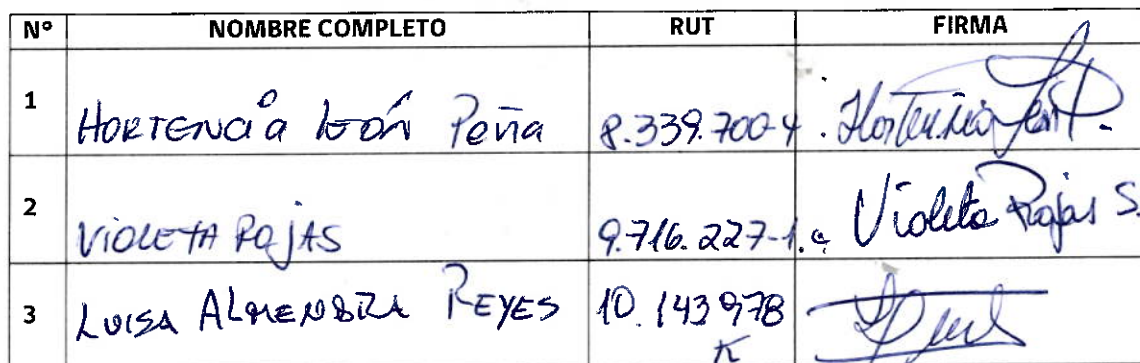 Nº NOMBRE COMPLETO RUT FIRMA
1 HORTENCIA León Peña 8.339.700-4 Hortencia León P.
2 VIOLETA ROJAS 9.716.227-1 Violeta Rojas S.
3 LUISA ALMENDRA REYES 10.143978
K